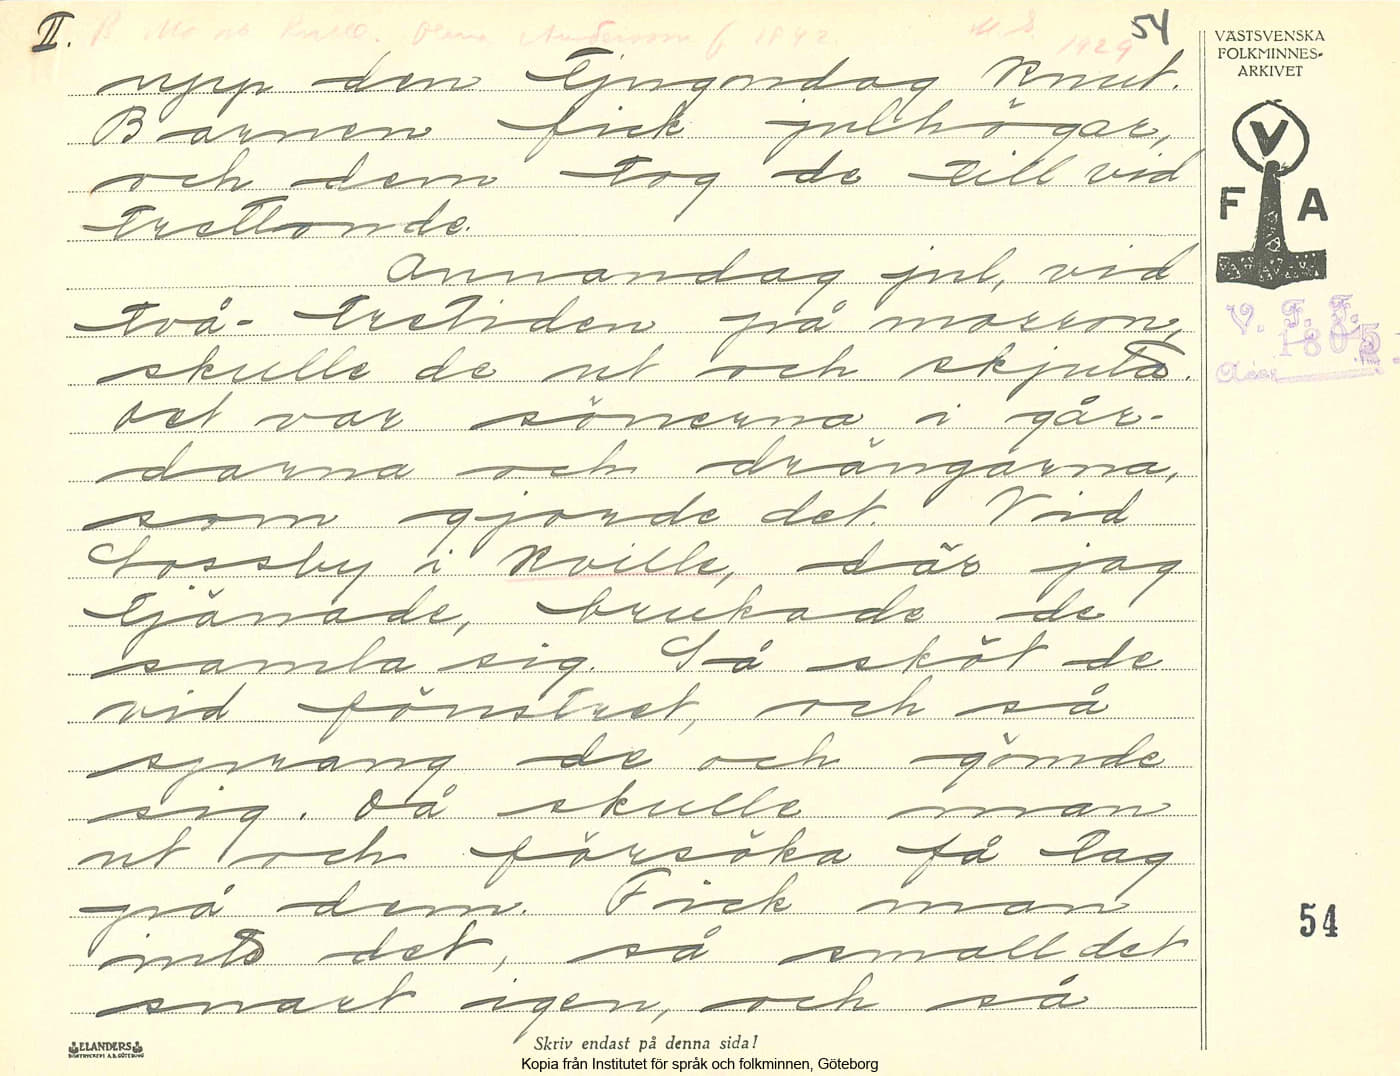 II.
54
1929
VÄSTSVENSKA
FOLKMINNES-
ARKIVET
V
F A
V. F. F.
1805
upp den tjugondag Knut.
Barnen fick julhögar,
och dem tog de till vid
trettonde.
Annandag jul, vid
två- tretiden på morron,
skulle de ut och skjuta.
Det var sönerna i går-
darna och drängarna,
som gjorde det. Vid
Sossby i Kville, där jag
tjänade, brukade de
samla sig. Så sköt de
vid fönstret, och så
sprang de och gömde
sig. Då skulle man
ut och försöka få tag
på dem. Fick man
inte det, så small det
snart igen, och så
54
ELANDERS
BOKTRYCKERI A.B. GÖTEBORG
Skriv endast på denna sida!
Kopia från Institutet för språk och folkminnen, Göteborg